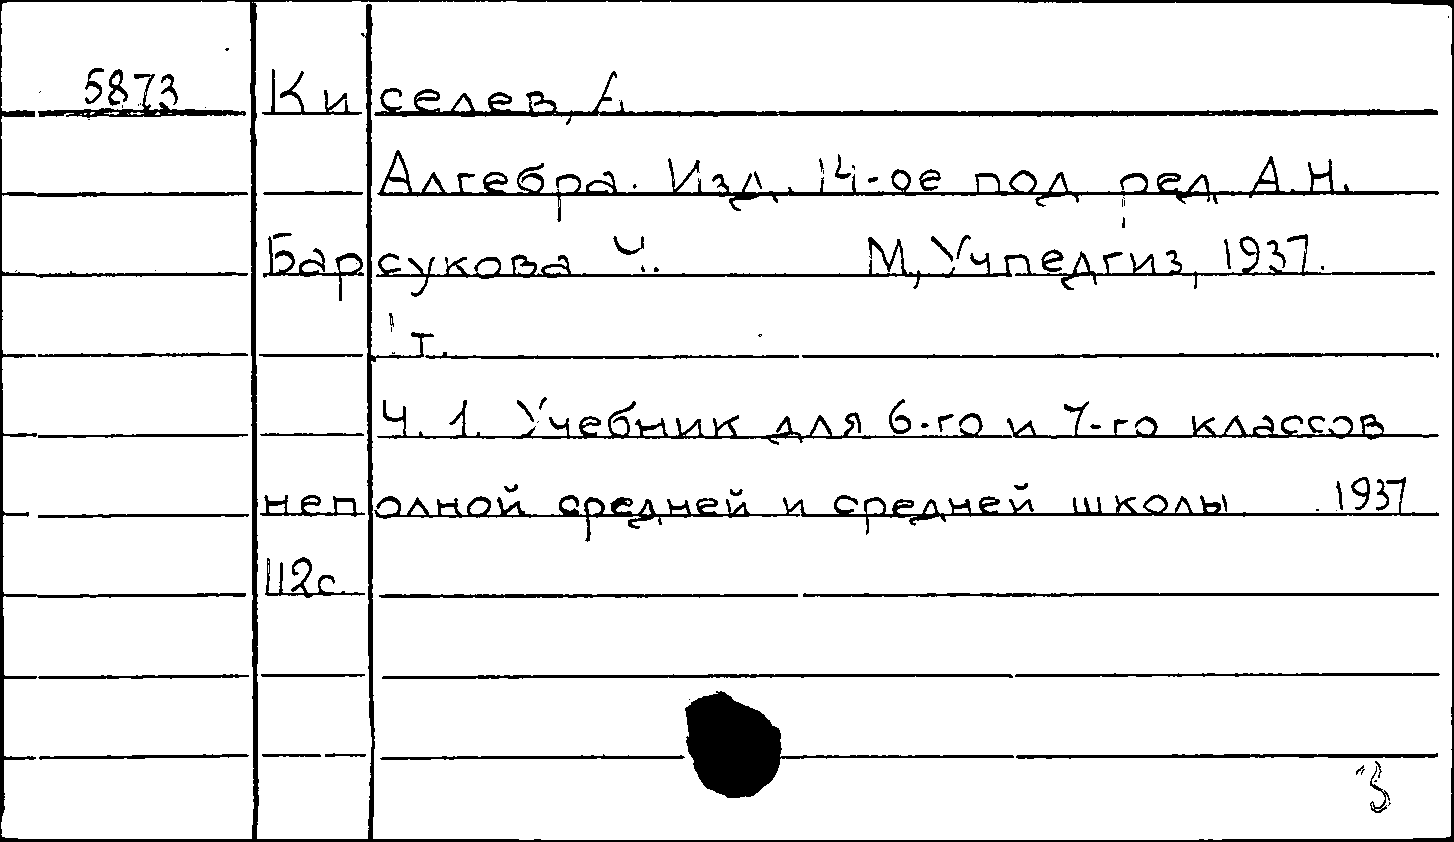 5873 Киселев, А.
Алгебра. Изд. 14-ое под ред. А.Н.
Барсукова Ч.. М, Учпедгиз, 1937.
т.
Ч. 1. Учебник для 6-го и 7-го классов
неполной средней и средней школы 1937
112с.
3